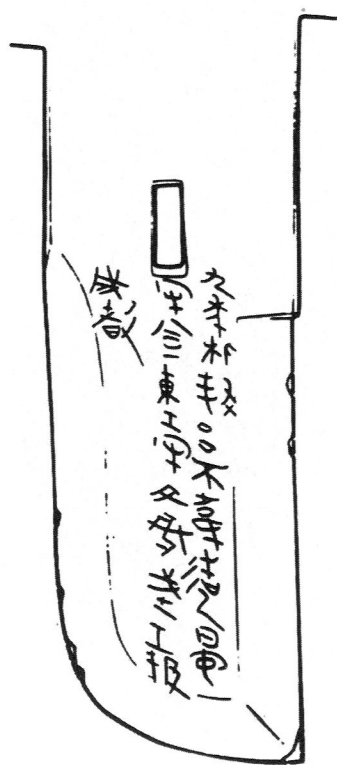 九年相邦呂不韋造蜀
守宣東工守文丞武工極
成都